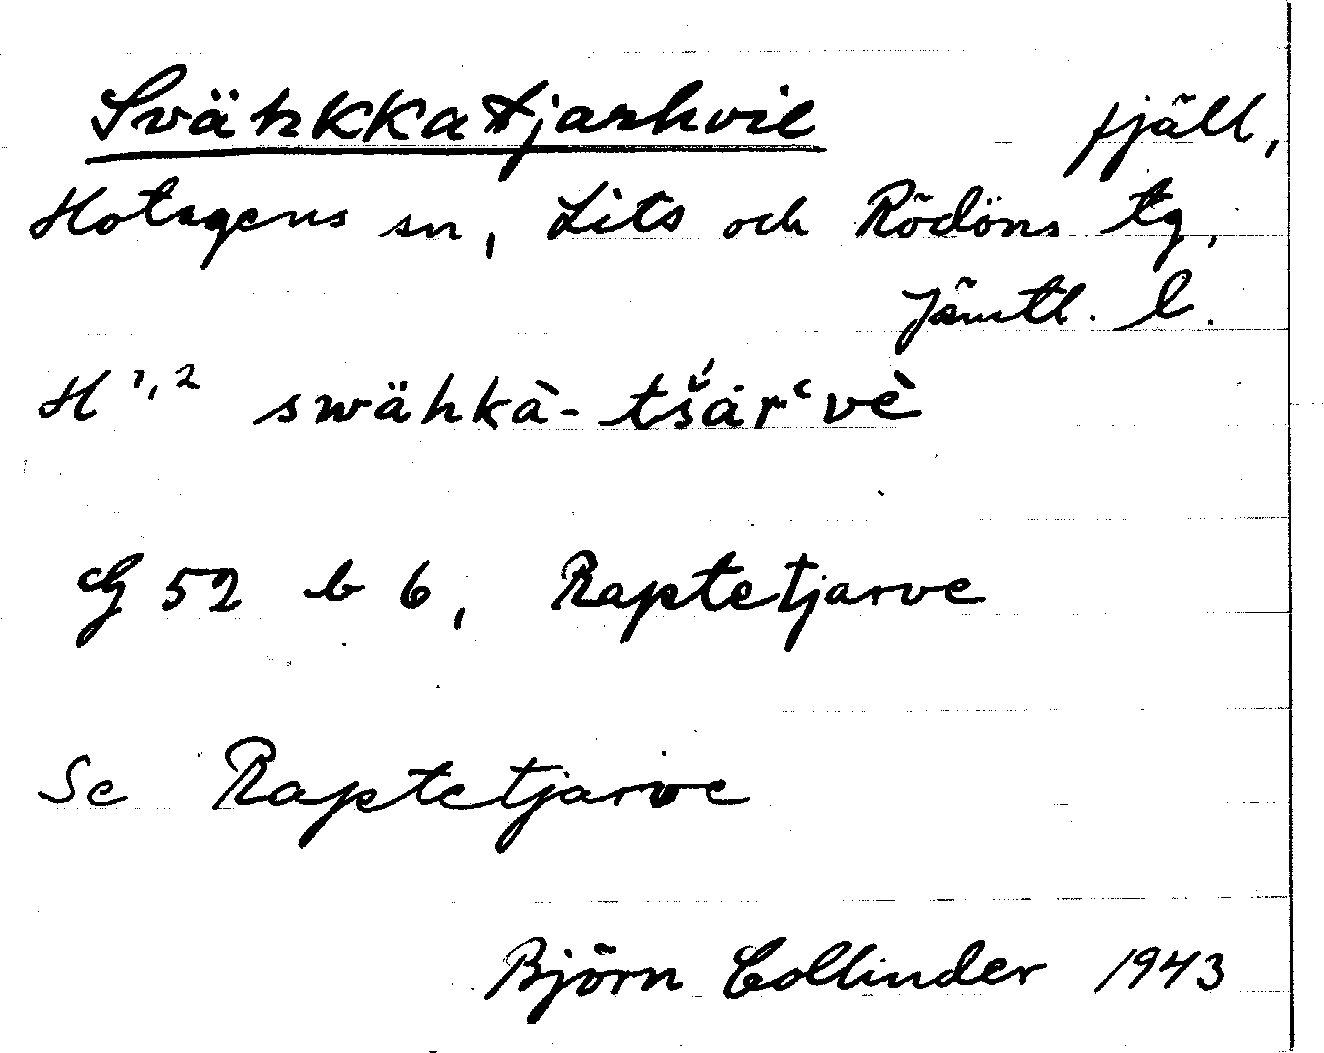 Svähkkatjarhvie fjäll,
Hotagens sn, Lits och Rödöns tg,
Jämtl. l.
H 1, 2 swähkà- tš́ár‘vè
G 52 b 6, Raptetjarve
Se Raptetjarve
Björn Collinder 1943